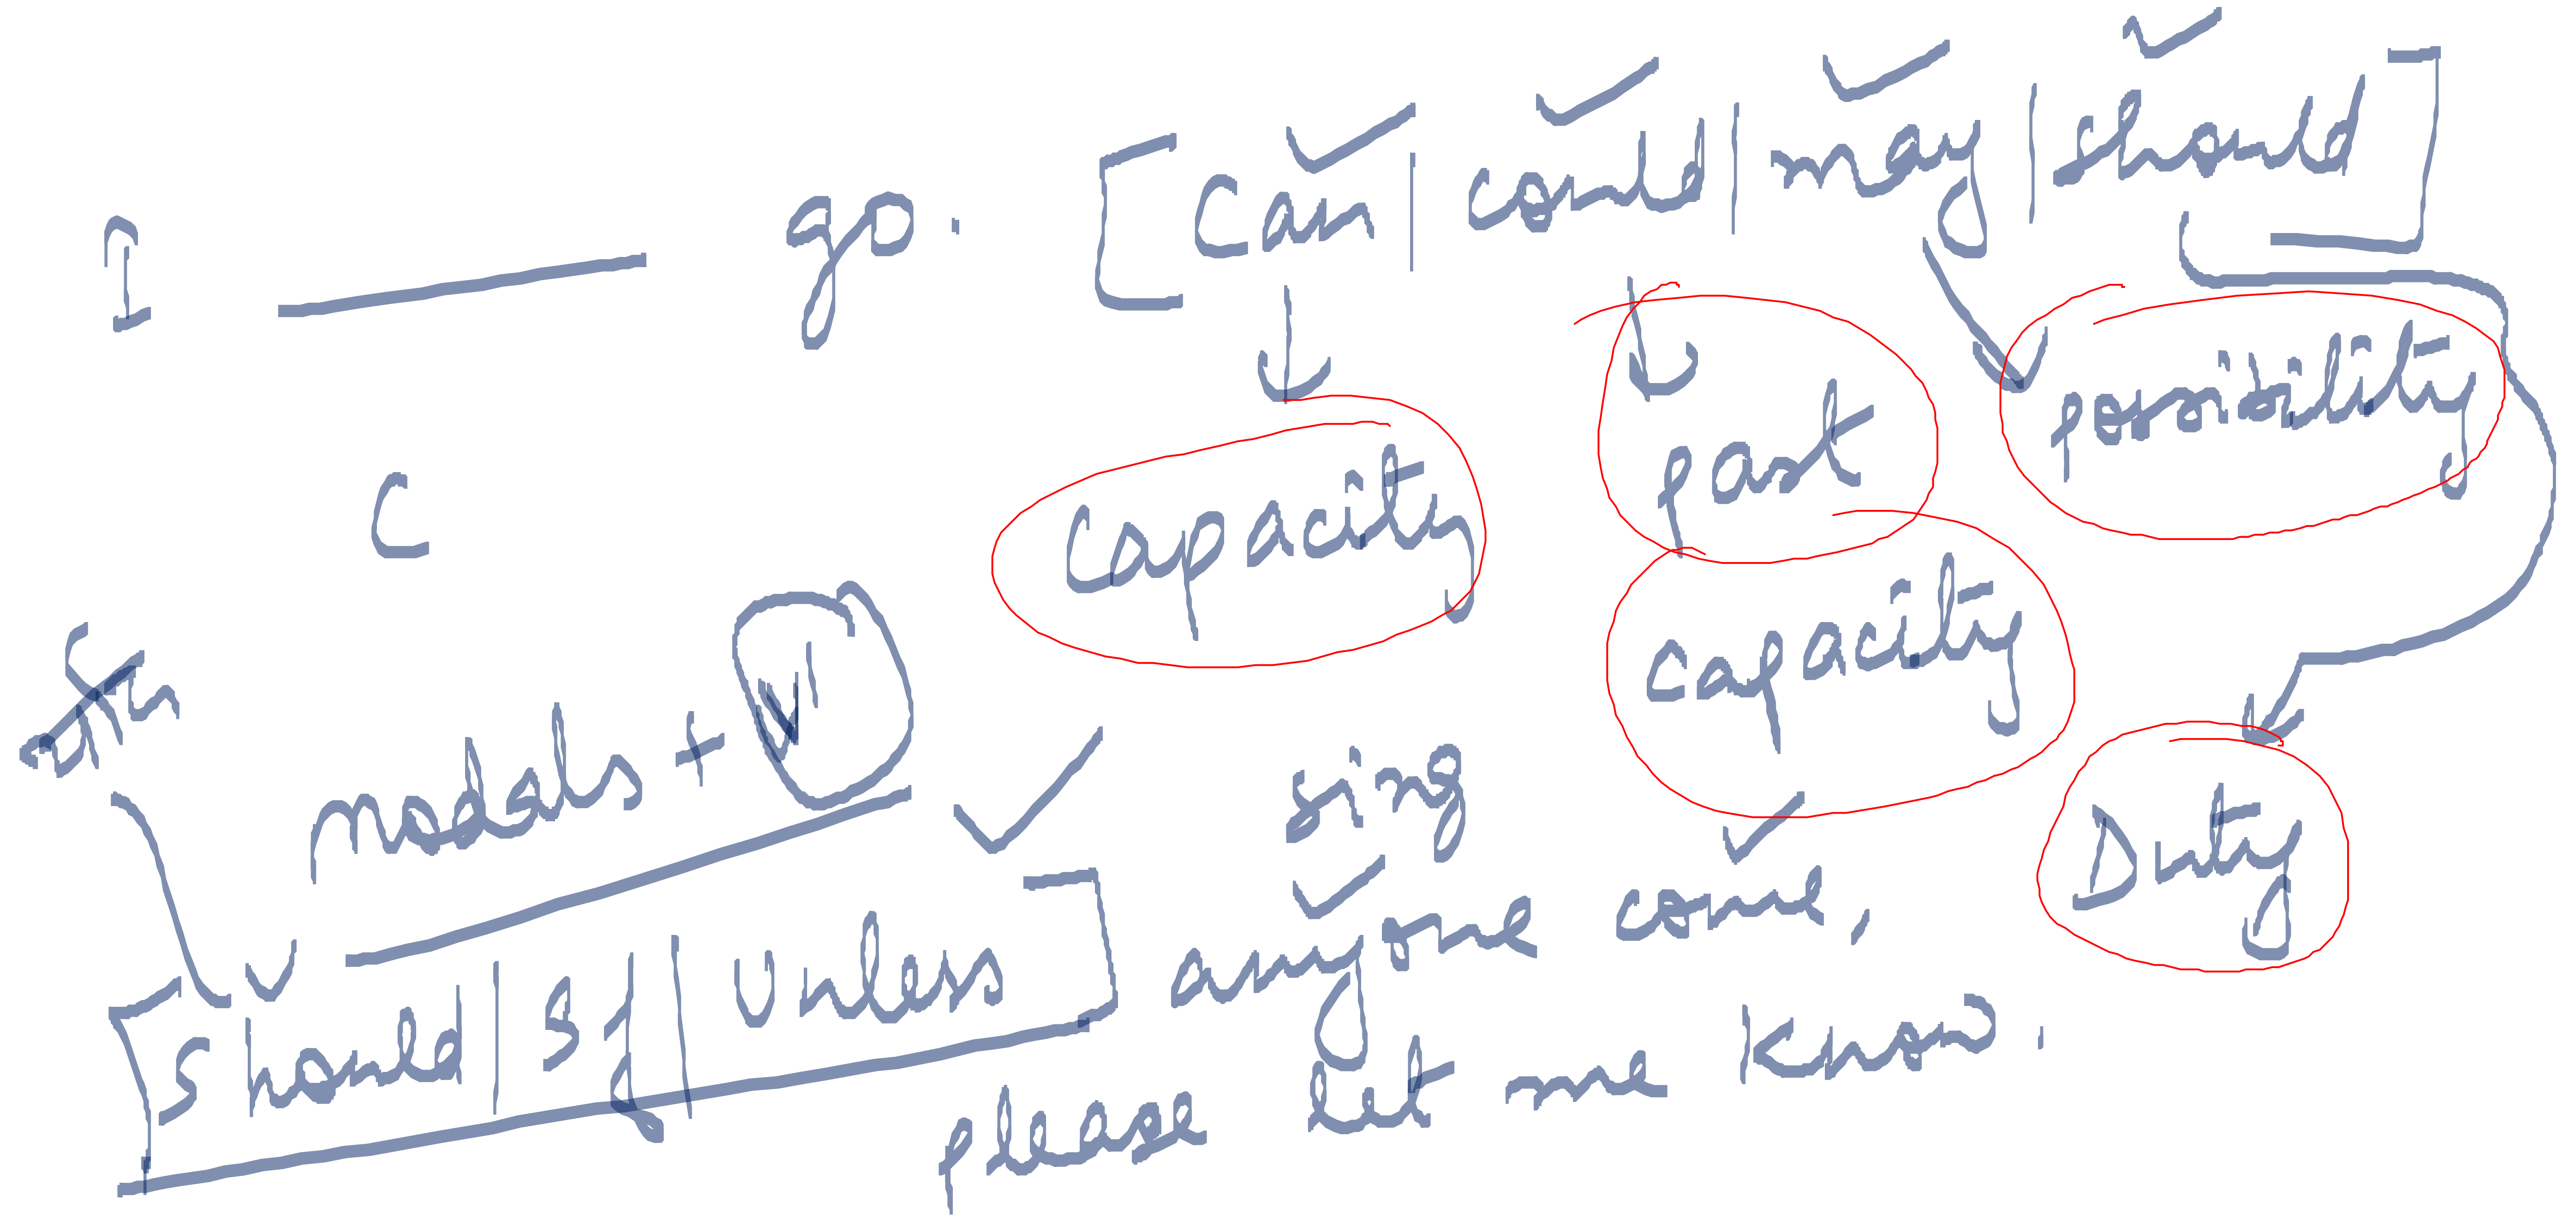 I ______ go. [Can | could | may | should]
Capacity
past
capacity
possibility
Duty
C
modals + V1
sing
[Should | If | Unless] anyone come,
please let me know.